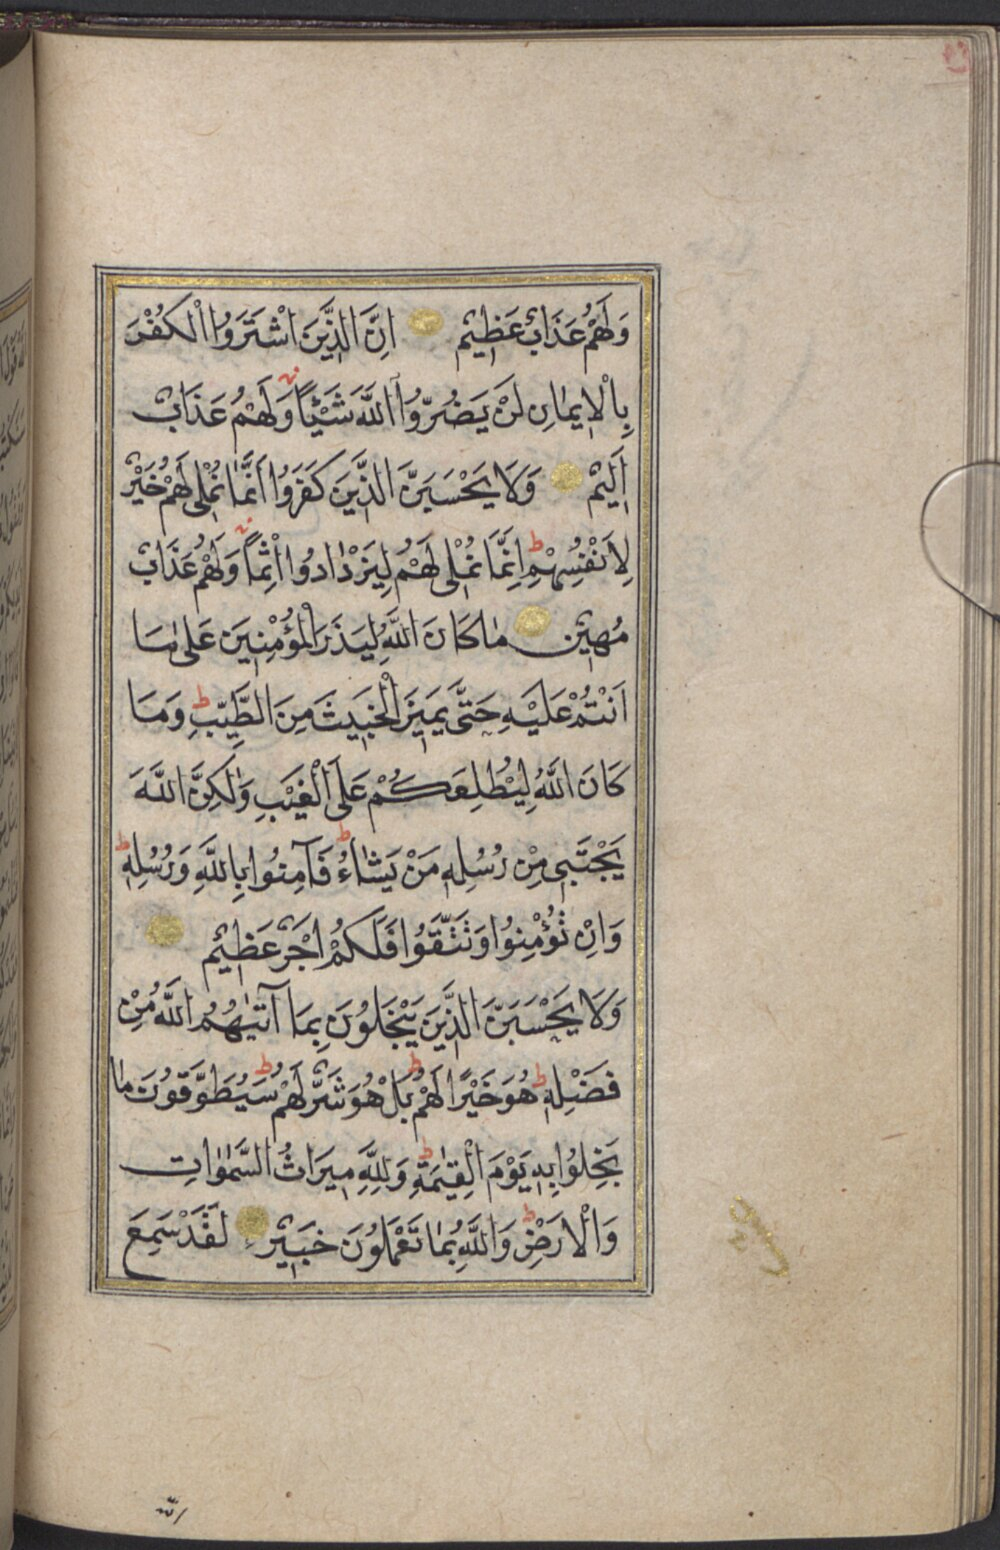 وَلَهُمْ عَذَابٌ عَظِيمٌ اِنَّ الَّذِينَ اشْتَرَوُا الْكُفْرَ
بِالْاِيمَانِ لَنْ يَضُرُّوا اللَّهَ شَيْئًا وَلَهُمْ عَذَابٌ
اَلِيمٌ وَلَا يَحْسَبَنَّ الَّذِينَ كَفَرُوا اَنَّمَا نُمْلِى لَهُمْ خَيْرٌ
لِاَنْفُسِهِمْ ط اِنَّمَا نُمْلِى لَهُمْ لِيَزْدَادُوا اِثْمًا وَلَهُمْ عَذَابٌ
مُهِينٌ مَاكَانَ اللَّهُ لِيَذَرَ الْمُؤْمِنِينَ عَلَى مَا
اَنْتُمْ عَلَيْهِ حَتَّى يَمِيزَ الْخَبِيثَ مِنَ الطَّيِّبِ ط وَمَا
كَانَ اللَّهُ لِيُطْلِعَكُمْ عَلَى الْغَيْبِ وَلٰكِنَّ اللَّهَ
يَجْتَبِى مِنْ رُسُلِهِ مَنْ يَشَاءُ ط فَآمِنُوا بِاللَّهِ وَرُسُلِهِ ط
وَاِنْ تُؤْمِنُوا وَتَتَّقُوا فَلَكُمْ اَجْرٌ عَظِيمٌ
وَلَا يَحْسَبَنَّ الَّذِينَ يَبْخَلُونَ بِمَا آتٰيهُمُ اللَّهُ مِنْ
فَضْلِهِ ط هُوَ خَيْرًا لَهُمْ ط بَلْ هُوَ شَرٌّ لَهُمْ ط سَيُطَوَّقُونَ مَا
بَخِلُوا بِهِ يَوْمَ الْقِيٰمَةِ ط وَلِلَّهِ مِيرَاثُ السَّمٰوَاتِ
وَالْاَرْضِ ط وَاللَّهُ بِمَا تَعْمَلُونَ خَبِيرٌ لَقَدْ سَمِعَ
اللّه